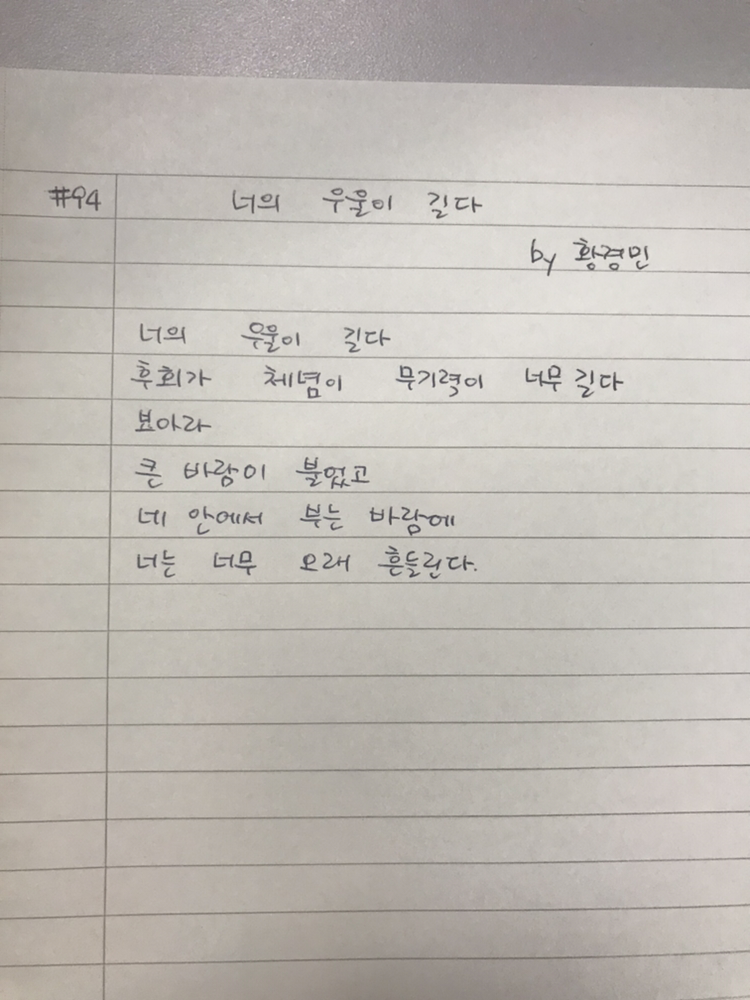 #94 너의 우울이 길다
by 황경민
너의 우울이 길다
후회가 체념이 무기력이 너무 길다
보아라
큰 바람이 불었고
네 안에서 부는 바람에
너는 너무 오래 흔들린다.